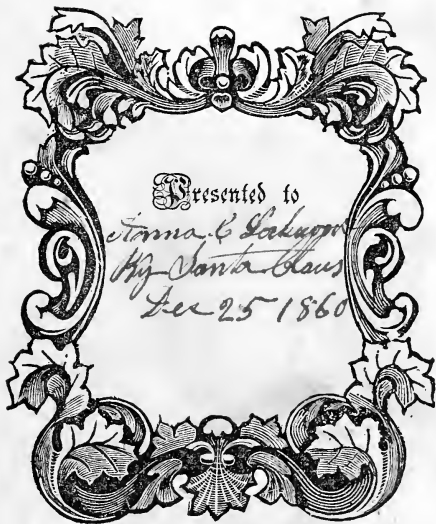 Presented to
Anna C
By Santa Claus
Dec 25 1860